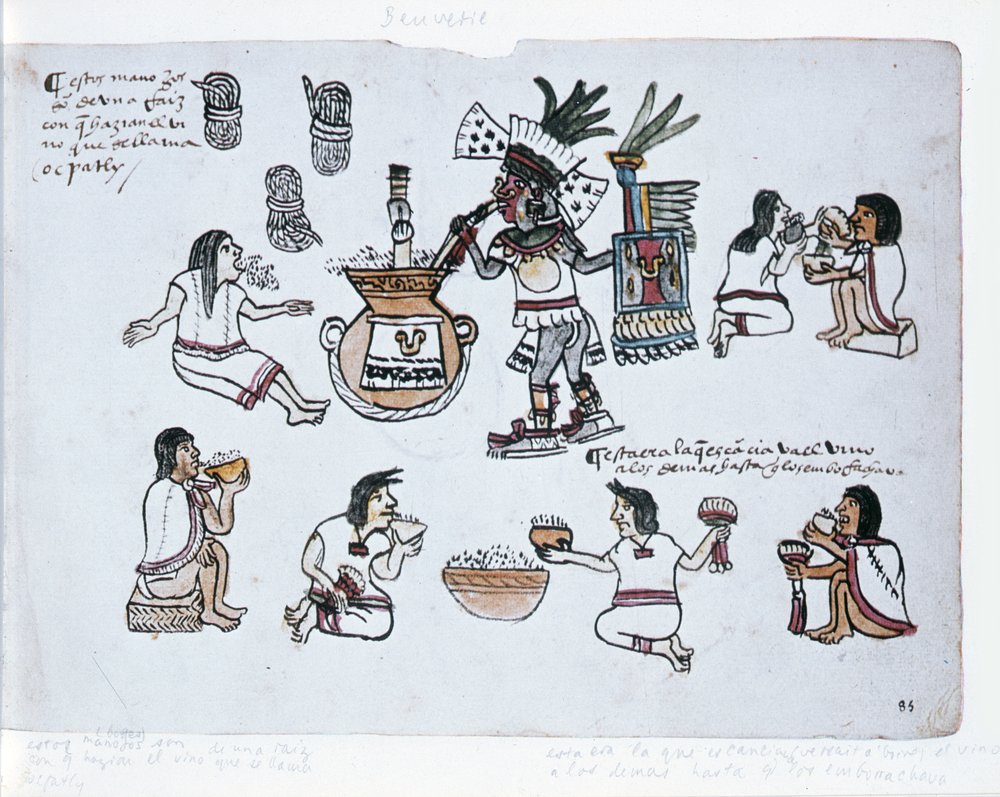 Benverie
estos manojos
sō de vna Raiz
con q̄ hazian el vi
no que se llama
ocpatly
esta era la q̄ escācia va el vino
a los demas hasta q̄ los embo Rachava
85
(bottes)
estos manojos son de una raiz
con q hazian el vino que se llama
ocpatly
esta era la que escancia (versait a boire) el vino
a los demas hasta q los emborrachava